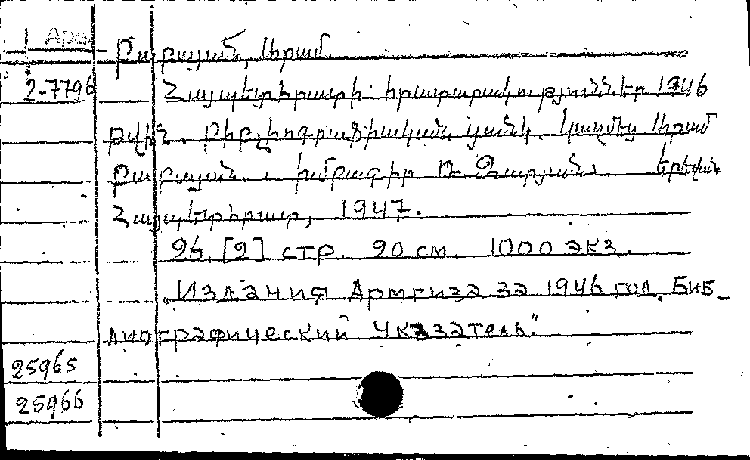 1 Арм
Բաբայան, Արամ
2-7796 Հայպետհրատի հրատարակություններ 1946
թվին. Բիբլիոգրաֆիական ցանկ. Կազմեց Արամ
Բաբայան. խմբագիր Ռ. Զարյան. Երևան
Հայպետհրատ, 1947.
26, [2] стр. 20 см. 1000 экз.
"Издания Армгиза за 1946 год. Биб-
лиографический указатель."
25965
25966